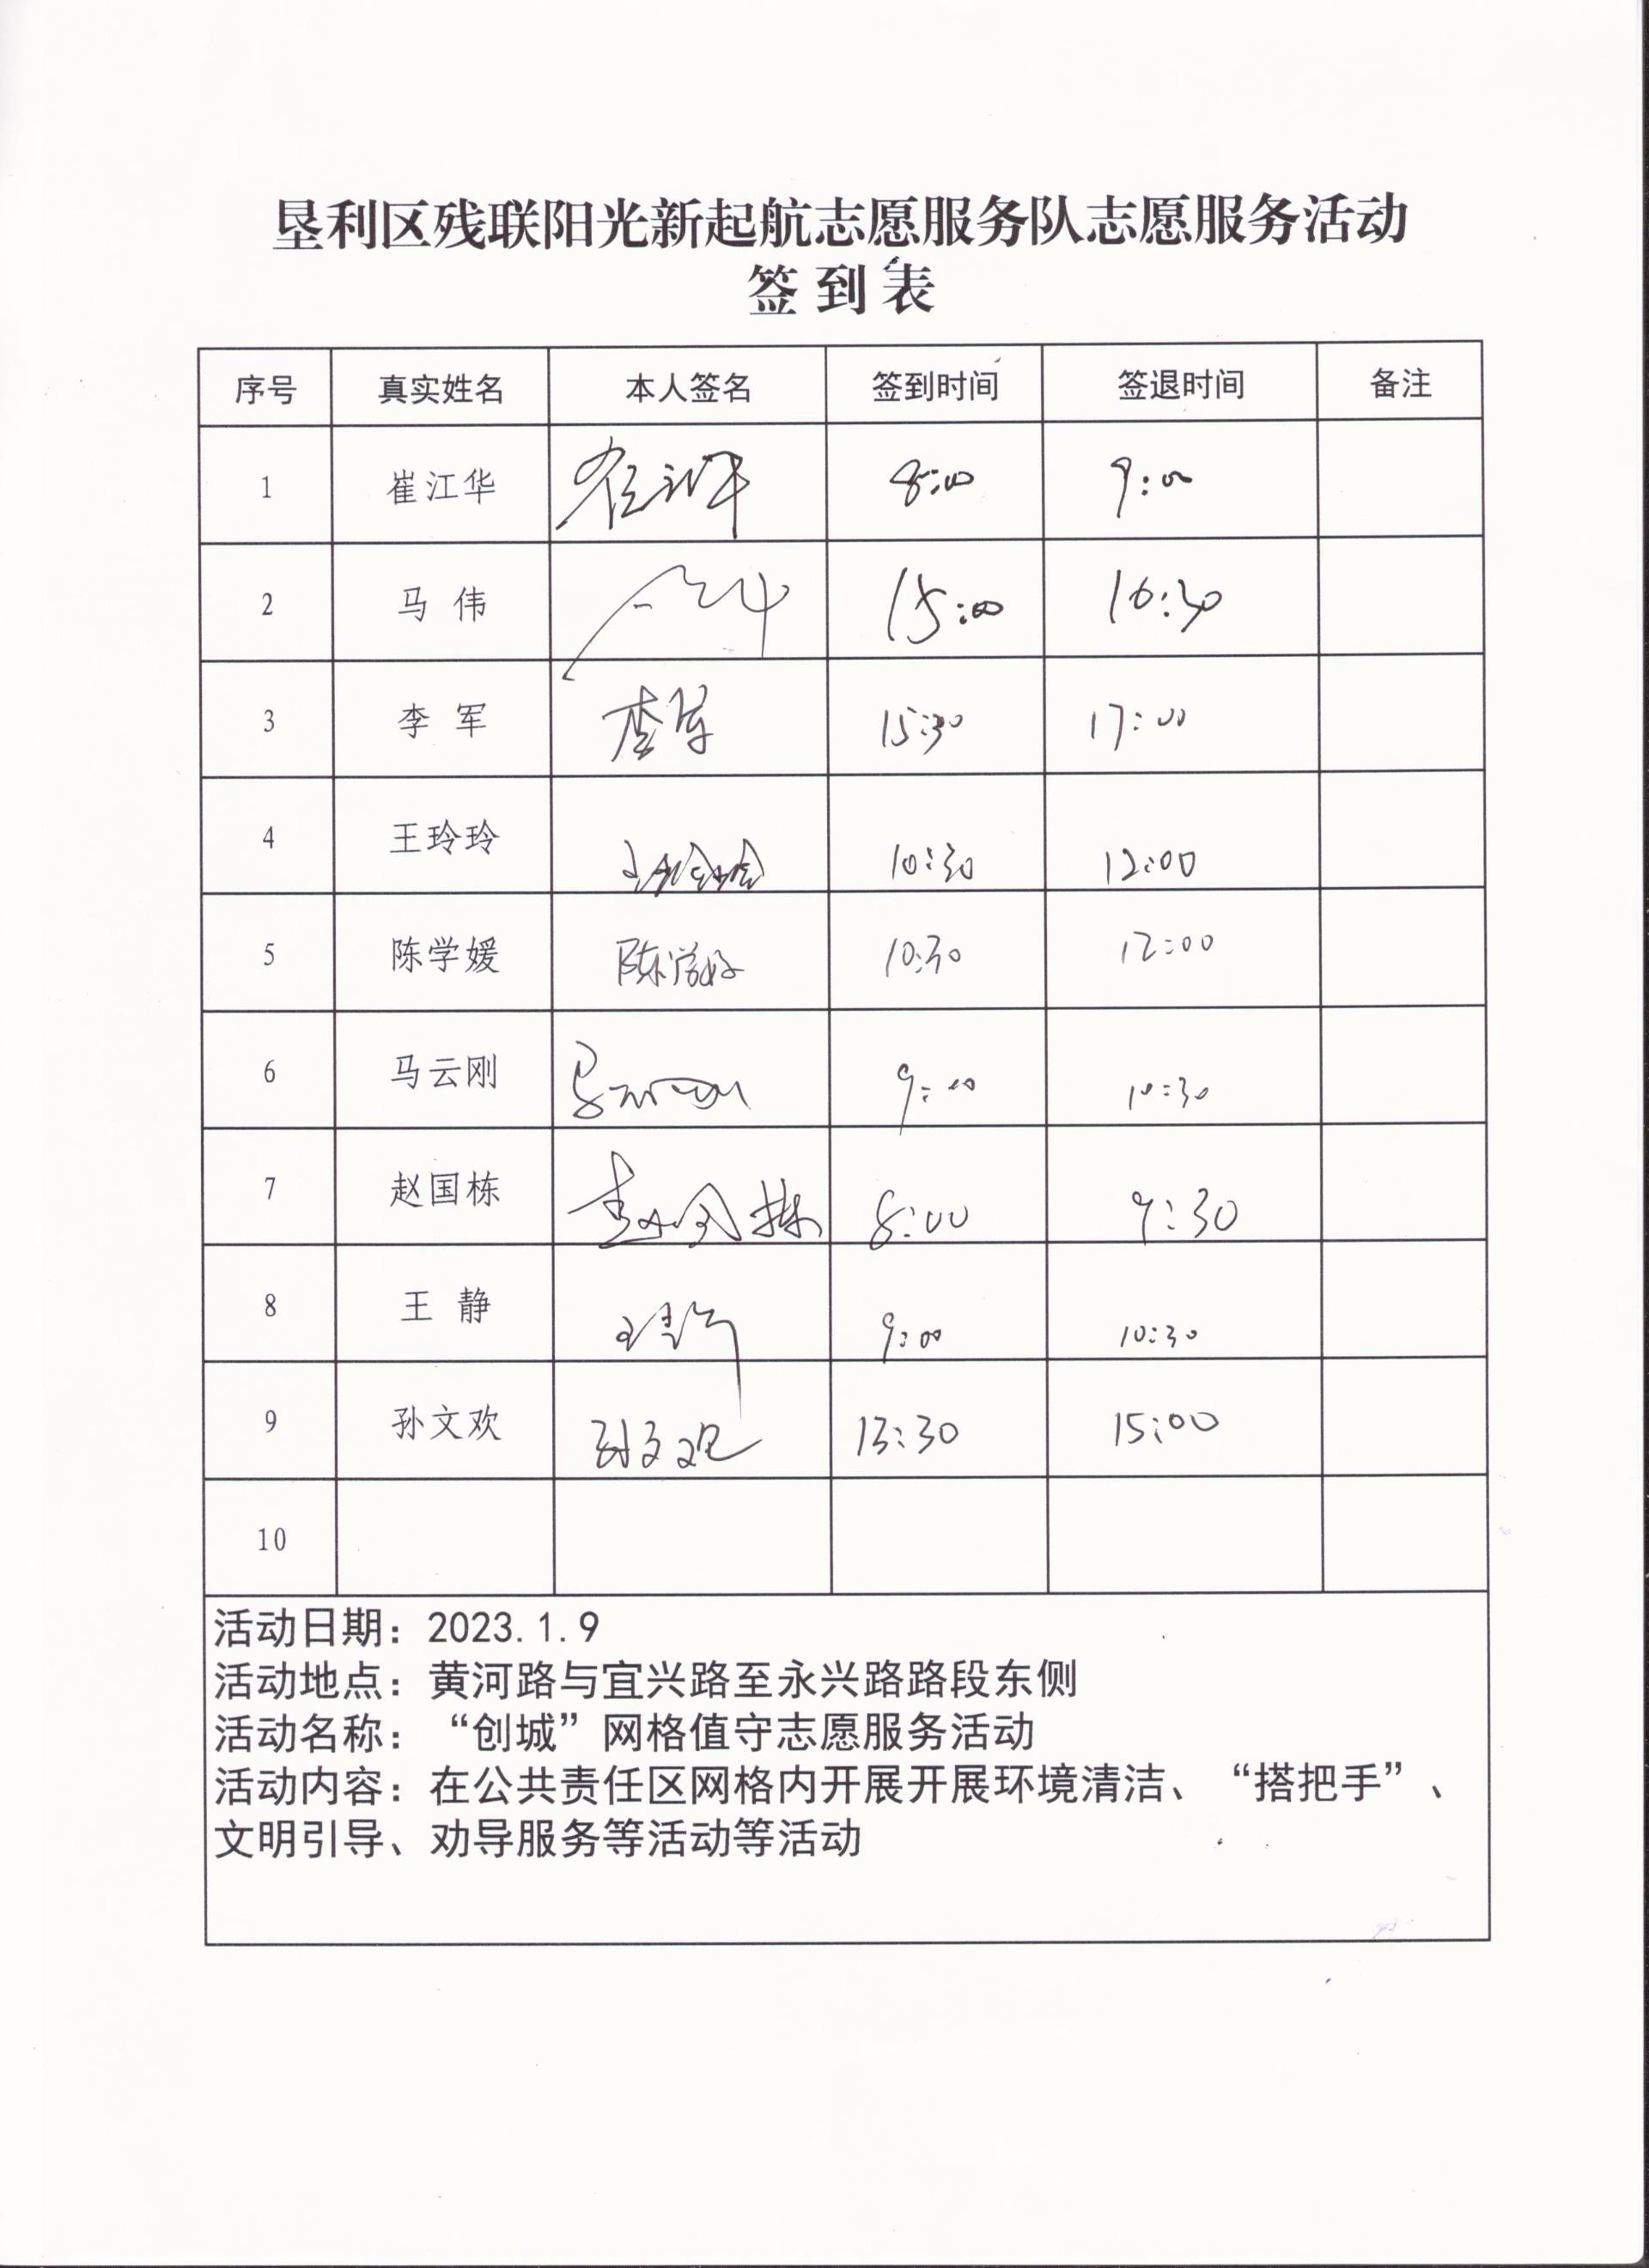 垦利区残联阳光新起航志愿服务队志愿服务活动
签到表
序号 真实姓名 本人签名 签到时间 签退时间 备注
1 崔江华 崔江华 8:00 9:00
2 马伟 马伟 15:00 16:30
3 李军 李军 15:30 17:00
4 王玲玲 王玲玲 10:30 12:00
5 陈学媛 陈学媛 10:30 12:00
6 马云刚 马云刚 9:00 10:30
7 赵国栋 赵国栋 8:00 9:30
8 王静 王静 9:00 10:30
9 孙文欢 孙文欢 13:30 15:00
10
活动日期：2023.1.9
活动地点：黄河路与宜兴路至永兴路路段东侧
活动名称：“创城”网格值守志愿服务活动
活动内容：在公共责任区网格内开展开展环境清洁、“搭把手”、
文明引导、劝导服务等活动等活动